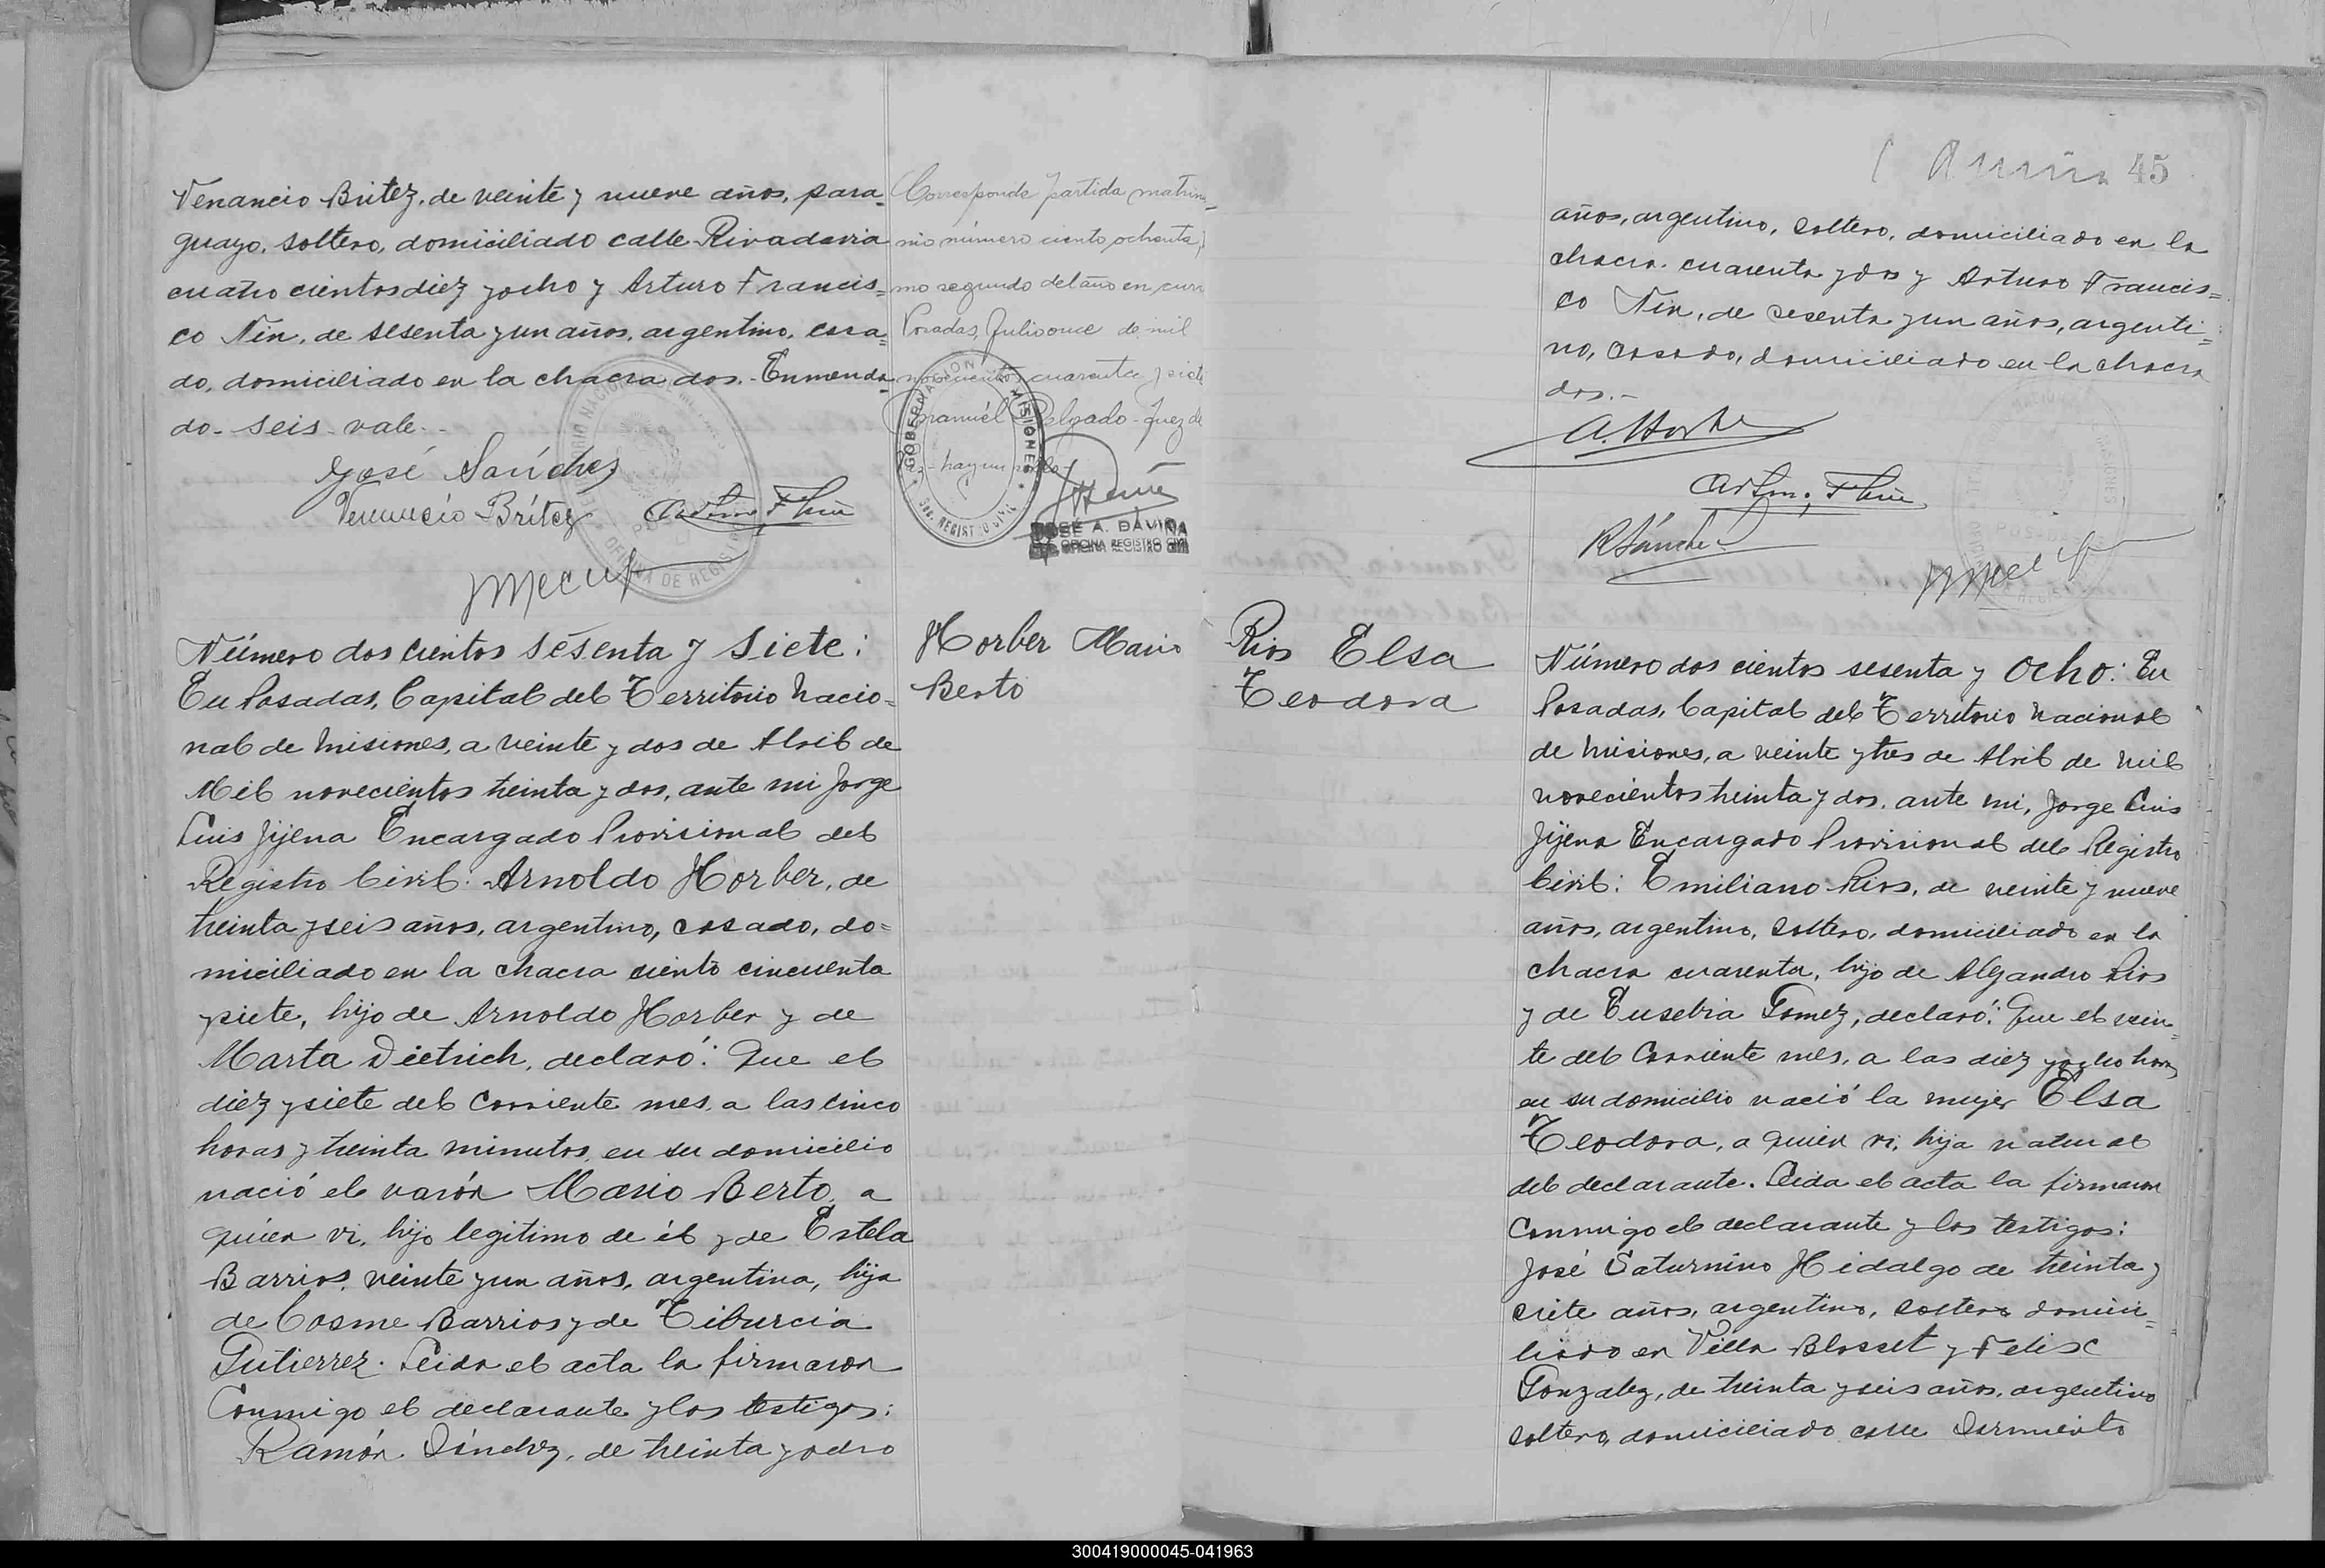 Venancio Britez, de veinte y nueve años, para=
guayo, soltero, domiciliado calle Rivadavia
cuatro cientos diez y ocho y Arturo Francis=
co Nin, de sesenta y un años, argentino, casa=
do, domiciliado en la chacra dos.- Enmenda
do- seis- vale.-
José Sanchez
Venancio Britez
Corresponde partida matrimo=
nio número ciento ochenta,
mo segundo del año en curs
Posadas, Julio once de mil
novecientos cuarenta y siete
Manuel Delgado - Juez de
- hay un sello
GOBERNACION MISIONES
REGISTRO CIVIL
JOSÉ A. DAVIÑA
OFICINA REGISTRO CIVIL
OFICINA DE REGISTRO
Número dos cientos sesenta y siete:
En Posadas, Capital del Territorio Nacio=
nal de Misiones, a veinte y dos de Abril de
Mil novecientos treinta y dos, ante mi Jorge
Luis Jijena Encargado Provisional del
Registro Civil: Arnoldo Horber, de
treinta y seis años, argentino, casado, do=
miciliado en la chacra ciento cincuenta
y siete, hijo de Arnoldo Horber y de
Marta Dietrich, declaró: Que el
diez y siete del corriente mes, a las cinco
horas y treinta minutos, en su domicilio
nació el varón Mario Berto, a
quien vi, hijo legitimo de él y de Estela
Barrios, veinte y un años, argentina, hija
de Cosme Barrios y de Tiburcia
Gutierrez. Leida el acta la firmaron
Conmigo el declarante y los testigos:
Ramón Sánchez, de treinta y ocho
Horber Mario
Berto
45
años, argentino, soltero, domiciliado en la
chacra cuarenta y dos y Arturo Francis=
co Nin, de sesenta y un años, argenti=
no, casado, domiciliado en la chacra
dos.-
A. Horber
R Sánchez
Rios Elsa
Teodora
Número dos cientos sesenta y ocho: En
Posadas, Capital del Territorio Nacional
de Misiones, a veinte y tres de Abril de Mil
novecientos treinta y dos, ante mi, Jorge Luis
Jijena Encargado Provisional del Registro
Civil: Emiliano Rios, de veinte y nueve
años, argentino, soltero, domiciliado en la
chacra cuarenta, hijo de Alejandro Rios
y de Eusebia Gomez, declaró: Que el vein=
te del Corriente mes, a las diez y ocho horas
en su domicilio nació la mujer Elsa
Teodora, a quien vi, hija natural
del declarante. Leida el acta la firmaron
Conmigo el declarante y los testigos:
José Saturnino Hidalgo de treinta y
siete años, argentino, soltero domici=
liado en Villa Blosset y Felix
Gonzalez, de treinta y seis años, argentino
soltero, domiciliado calle Sarmiento
300419000045-041963